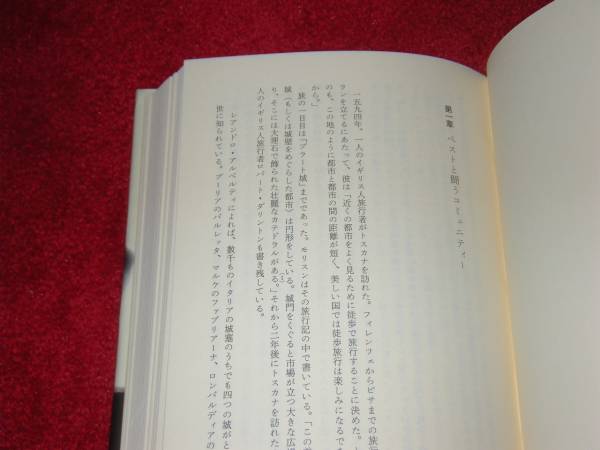 第一章　ペストと闘うコミュニティー
一五九四年、一人のイギリス人旅行者がトスカナを訪れた。フィレンツェからピサまでの旅行
ランを立てるにあたって、彼は「近くの都市をよく見るために徒歩で旅行することに決めた。
のも、この地のように都市と都市の間の距離が短く、美しい国では徒歩旅行は楽しみになるで
から。」
旅の一日目は「プラート城」までであった。モリスンはその旅行記の中で書いている。「この
城（もしくは城壁をめぐらした都市）は円形をしている。城門をくぐると市場が立つ大きな広
り、そこには大理石で飾られた壮麗なカテドラルがある。」それから二年後にトスカナを訪れた
人のイギリス人旅行者ロバート・ダリントンも書き残している。
レアンドロ・アルベルティによれば、数千ものイタリアの城塞のうちでも四つの城がと
世に知られている。プーリアのバルレッタ、マルケのファブリアーナ、ロンバルディアの